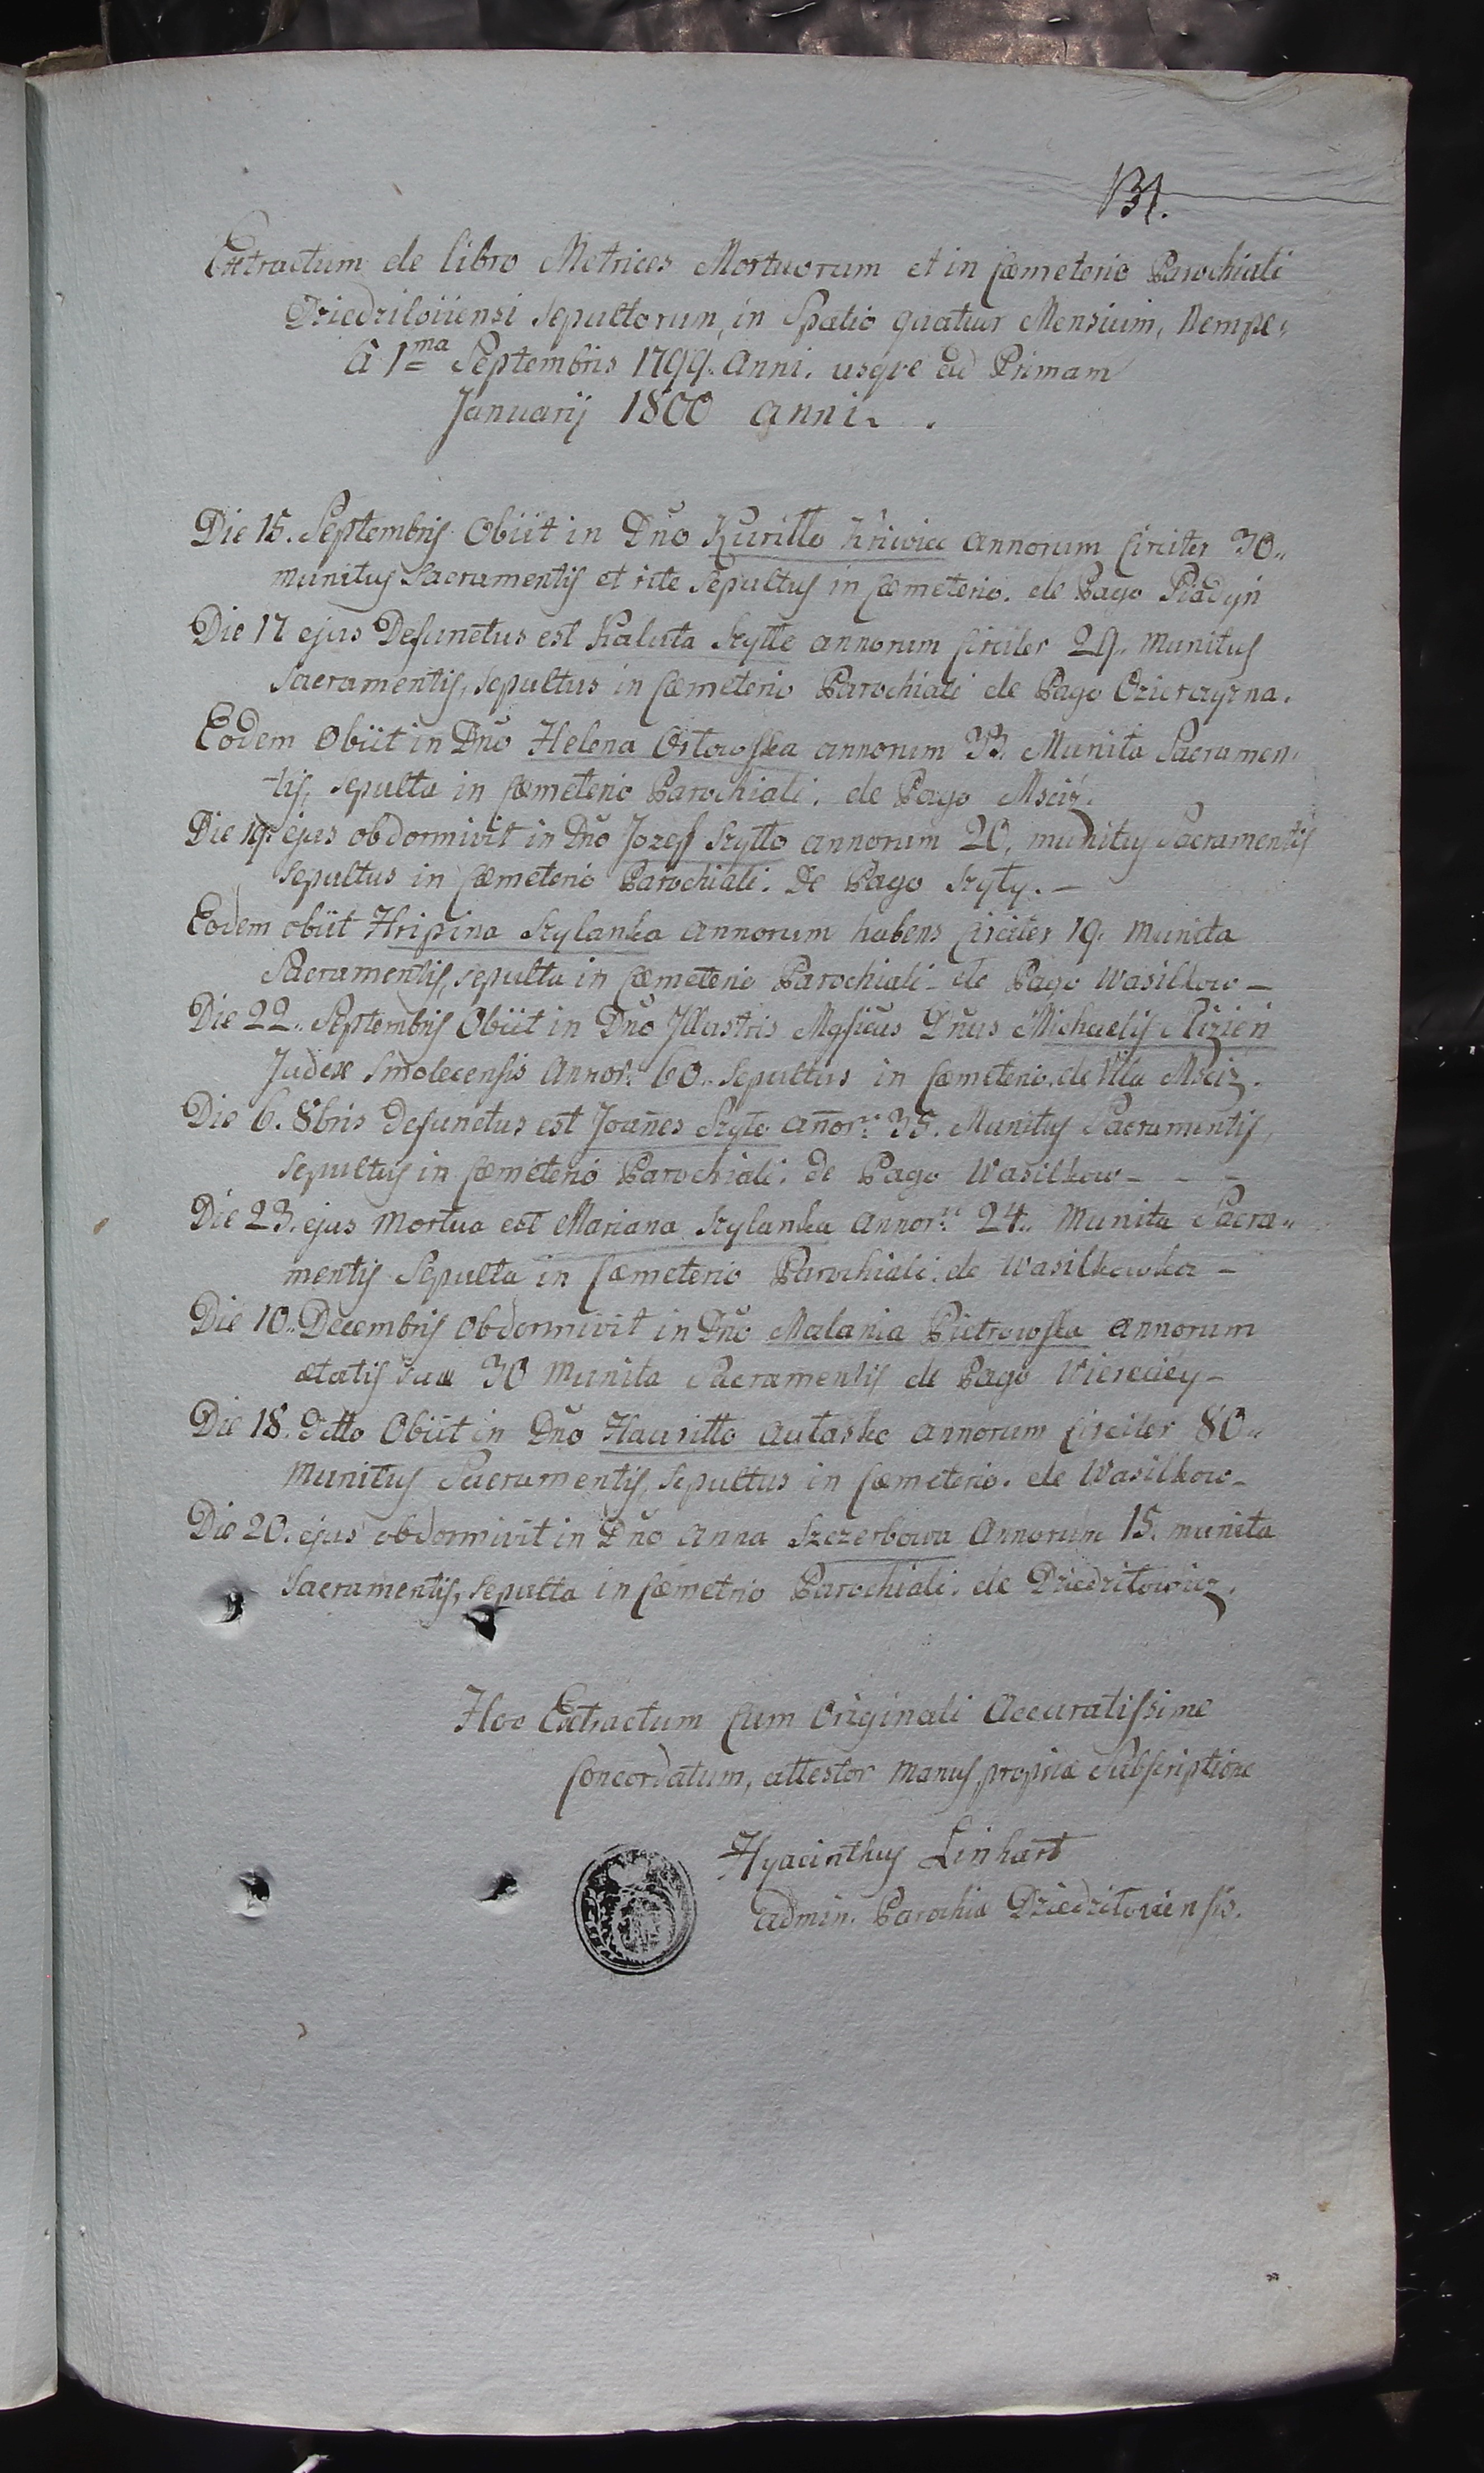 131.
Extractum de libro Metrices Mortuorum et in Cœmeterio Parochiali
Dziedziloviiensi Sepultorum, in Spatio quatuar Mensium, Nempe„
à 1ma Septembris 1799. Anni. usqve ad Primam
Januarij 1800 anni.
Die 15. Septembris Obiit in Dño Kuriłło Kriwiec annorum Circiter 30„
munitus Sacramentis et rite Sepultus in Cœmeterio. de Pago Piadyń
Die 17 ejus Defunctus est Kaluta Szyłłe annorum Circiter 29. munitus
Sacramentis, sepultus in Cœmeterio Parochiali de Pago Ozierczyzna.
Eodem Obiit in Dño Helena Osłowska annorum 33. Munita Sacramen„
tis, sepulta in Cœmeterio Parochiali. de Pago Mściż.
Die 19. ejus obdormivit in Dño Jozeff Szyłło annorum 20, munitus Sacramentis
sepultus in Cœmeterio Parochiali. de Pago Szyły. —
Eodem obiit Hripina Szylanka annorum habens Circiter 19. munita
Sacramentis, sepulta in Cœmeterio Parochiali de Pago Wasilkow —
Die 22. Septembris Obiit in Dño Jllustris Mgficus Dñus Michaelis
Judex Smolecensis Annor: 60. Sepultus in Cœmeterio. de Villa Mściż.
Die 6. 8bris Defunctus est Joañes Szyło añor: 35. Munitus Sacramentis,
sepultus in Cœmeterio Parochiali. de Pago Wasilkow - - -
Die 23. ejus mortua est Mariana Szylanka annor: 24. Munita Sacra„
mentis Sepulta in Cœmeterio Parochiali. de Wasilkowka —
Die 10. Decembris Obdormivit in Dño Malania Pietrowska annorum
ætatis suæ 30 Munita Sacramentis de Pago Wiereciey -
Die 18. Ditto Obiit in Dño Hauriłło Autasko annorum Circiter 80„
Munitus Sacramentis, Sepultus in Cœmeterio. de Wasilkow -
Die 20. ejus obdormivit in Dño Anna Szczerbowa Annorum 15. munita
Sacramentis, sepulta in Cœmetrio Parochiali. de Dziedziłowicz.
Hoc Extractum Cum Originali Accuratissime
Concordatum, attestor Manus propriæ Subscriptione
Hyacinthus Linhart
Admin. Parochia Dziedziłoviensis.